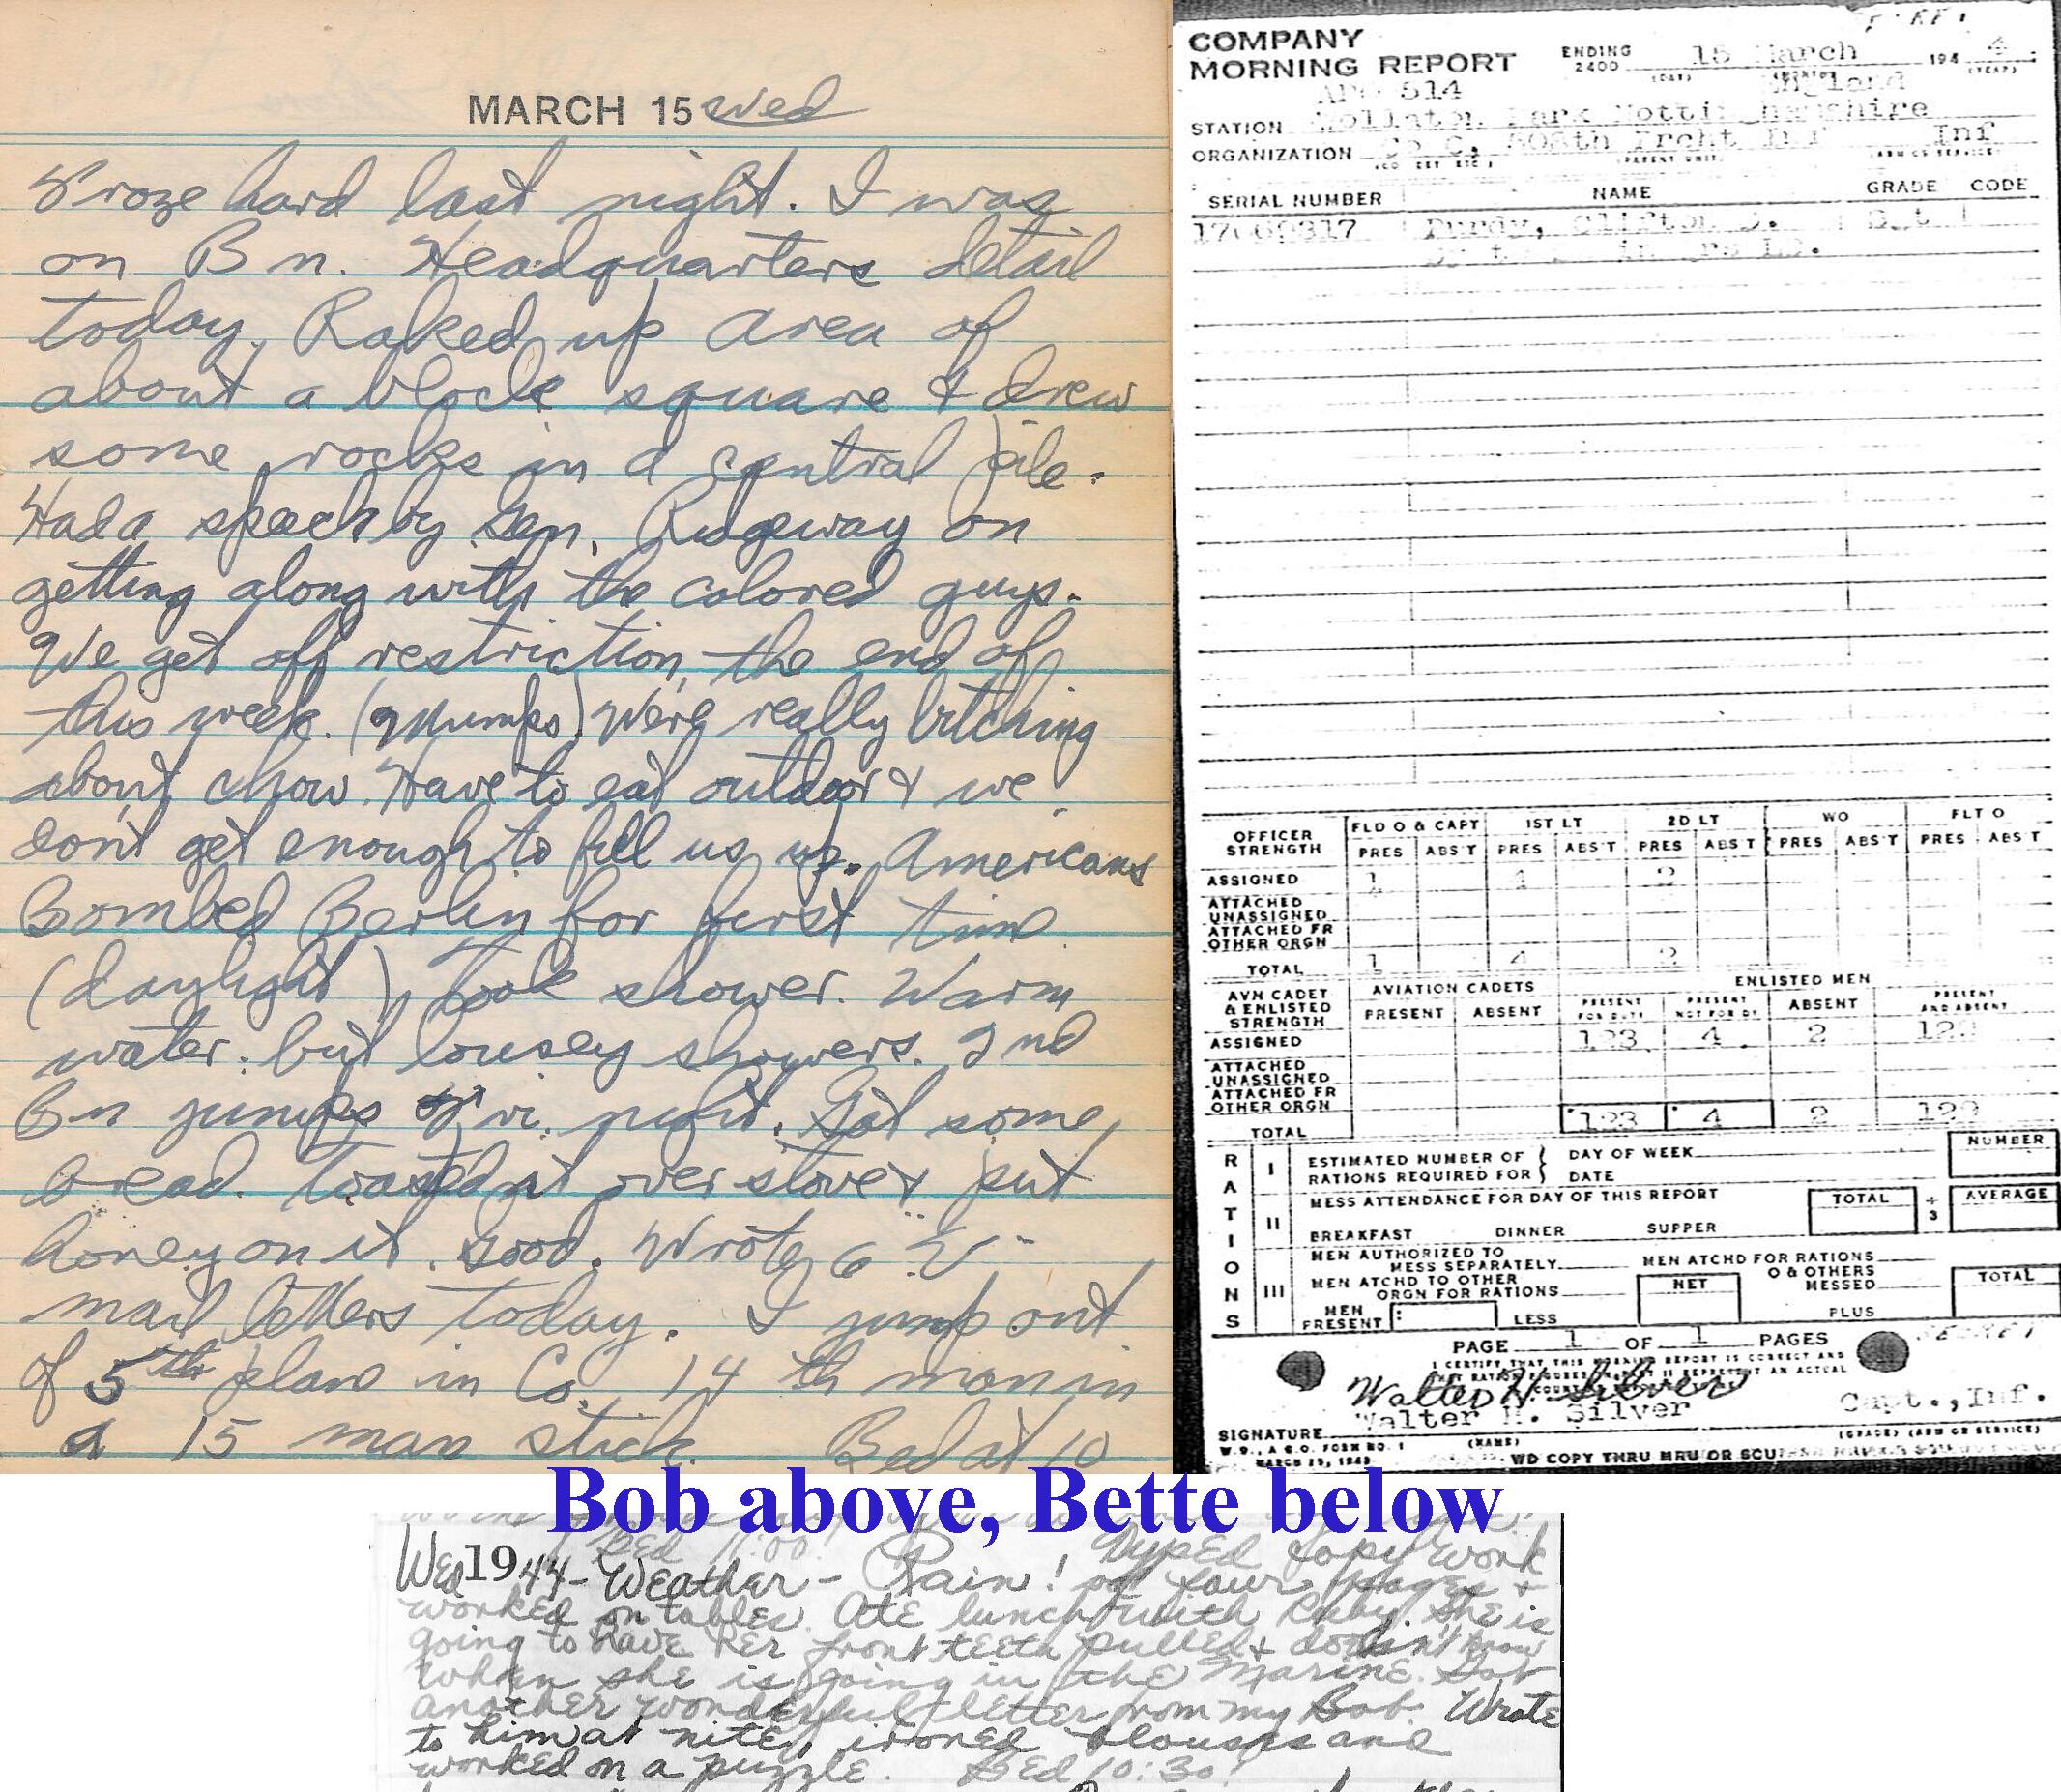 MARCH 15 Wed
Froze hard last night. I was
on Bn. Headquarters detail
today. Raked up area of
about a block square & drew
some rocks in a central pile.
Had a speech by Gen. Ridgeway on
getting along with the colored guys.
We get off restriction the end of
this week. (Mumps) We're really bitching
about chow. Have to eat outdoor & we
don't get enough to fill us up. Americans
Bombed Berlin for first time
(daylight) Took shower. Warm
water. but lousey showers. 2nd
Bn jumps Fri. night. Got some
bread. Toasted it over stove & put
honey on it. Good. Wrote 6 V-
mail letters today. I jump out
of 5th plane in Co. 14th man in
a 15 man stick. Bed at 10
COMPANY
MORNING REPORT ENDING 2400 15 March 1944
(DAY) (MONTH) (YEAR)
APO 514 England
STATION Wollaton Park Nottinghamshire
ORGANIZATION Co C, 508th Prcht Inf Inf
(PARENT UNIT) (ARM OR SERVICE)
SERIAL NUMBER NAME GRADE CODE
17069317 Purdy, Clifton Sgt
OFFICER STRENGTH FLD O & CAPT 1ST LT 2D LT WO FLT O
PRES ABS'T PRES ABS'T PRES ABS T PRES ABS'T PRES ABS T
ASSIGNED 1 4 2
ATTACHED UNASSIGNED
ATTACHED FR OTHER ORGN
TOTAL 1 4 2
AVN CADET & ENLISTED STRENGTH AVIATION CADETS ENLISTED MEN
PRESENT ABSENT PRESENT FOR DUTY PRESENT NOT FOR DY ABSENT PRESENT AND ABSENT
ASSIGNED 123 4 2 129
ATTACHED UNASSIGNED
ATTACHED FR OTHER ORGN
TOTAL 123 4 2 129
RATIONS
I ESTIMATED NUMBER OF RATIONS REQUIRED FOR DAY OF WEEK DATE NUMBER
II MESS ATTENDANCE FOR DAY OF THIS REPORT TOTAL ÷ 3 AVERAGE
BREAKFAST DINNER SUPPER
III MEN AUTHORIZED TO MESS SEPARATELY MEN ATCHD FOR RATIONS
MEN ATCHD TO OTHER ORGN FOR RATIONS NET O & OTHERS MESSED TOTAL
MEN PRESENT LESS PLUS
PAGE 1 OF 1 PAGES SECRET
I CERTIFY THAT THIS MORNING REPORT IS CORRECT AND
Walter H. Silver
Walter H. Silver Capt., Inf.
SIGNATURE (NAME) (GRADE) (ARM OR SERVICE)
W.D., A.G.O. FORM NO. 1
MARCH 25, 1943 WD COPY THRU MRU OR
Bob above, Bette below
Bed 11:00!
Wed 1944 - Weather - Rain! Typed copy work
on four pages &
worked on tables. Ate lunch with Ruby. She is
going to have her front teeth pulled & doesn't know
when she is going in the Marine. Got
another wonderful letter from my Bob. Wrote
to him at nite, ironed blouses and
worked on a puzzle. Bed 10:30!